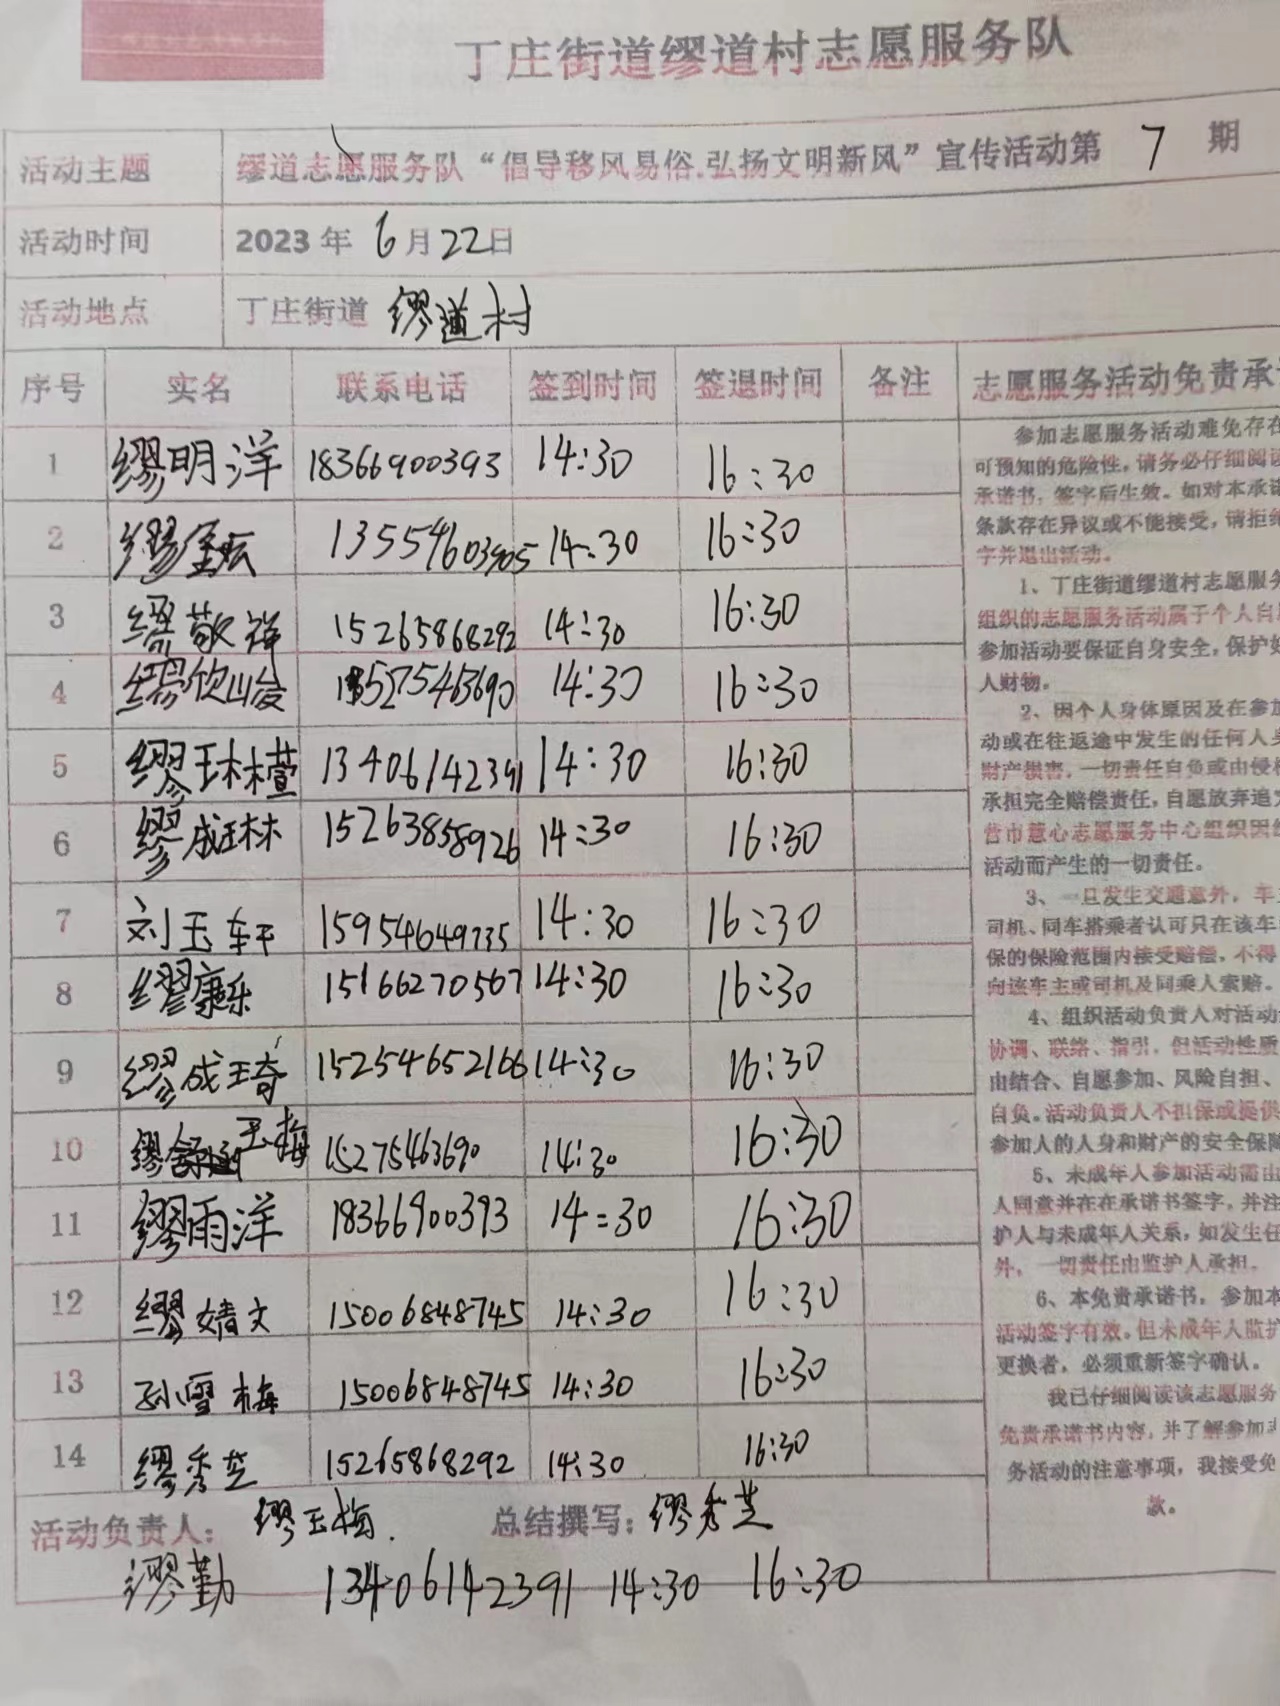 丁庄街道缪道村志愿服务队
活动主题 缪道志愿服务队“倡导移风易俗.弘扬文明新风”宣传活动第 7 期
活动时间 2023年 6月22日
活动地点 丁庄街道 缪道村
序号 实名 联系电话 签到时间 签退时间 备注
1 缪明洋 18366900393 14:30 16:30
2 缪 14:30 16:30
3 缪敬祥 15265868292 14:30 16:30
4 缪 15275463690 14:30 16:30
5 缪琳萱 13406142391 14:30 16:30
6 缪成琳 15263858926 14:30 16:30
7 刘玉轩 15954649735 14:30 16:30
8 缪康乐 15166270567 14:30 16:30
9 缪成琦 15254652166 14:30 16:30
10 缪玉梅 15275463690 14:30 16:30
11 缪雨洋 18366900393 14:30 16:30
12 缪婧文 15006848745 14:30 16:30
13 孙雪梅 15006848745 14:30 16:30
14 缪秀芝 15265868292 14:30 16:30
活动负责人: 缪玉梅. 总结撰写: 缪秀芝
缪勤 13406142391 14:30 16:30
志愿服务活动免责承
参加志愿服务活动难免存在
可预知的危险性,请务必仔细阅读
承诺书,签字后生效。如对本承诺
条款存在异议或不能接受,请拒绝
字并退出活动。
1、丁庄街道缪道村志愿服务
组织的志愿服务活动属于个人自
参加活动要保证自身安全,保护好
人财物。
2、因个人身体原因及在参加
动或在往返途中发生的任何人身
财产损害,一切责任自负或由侵权
承担完全赔偿责任,自愿放弃追究
营市慧心志愿服务中心组织因组
活动而产生的一切责任。
3、一旦发生交通意外,车
司机、同车搭乘者认可只在该车
保的保险范围内接受赔偿,不得
向该车主或司机及同乘人索赔。
4、组织活动负责人对活动
协调、联络、指引,但活动性质
由结合、自愿参加、风险自担、
自负。活动负责人不担保或提供
参加人的人身和财产的安全保险
5、未成年人参加活动需由
人同意并在在承诺书签字,并注
护人与未成年人关系,如发生任
外,一切责任由监护人承担。
6、本免责承诺书,参加本
活动签字有效。但未成年人监护
更换者,必须重新签字确认。
我已仔细阅读该志愿服务
免责承诺书内容,并了解参加
务活动的注意事项,我接受免
款。